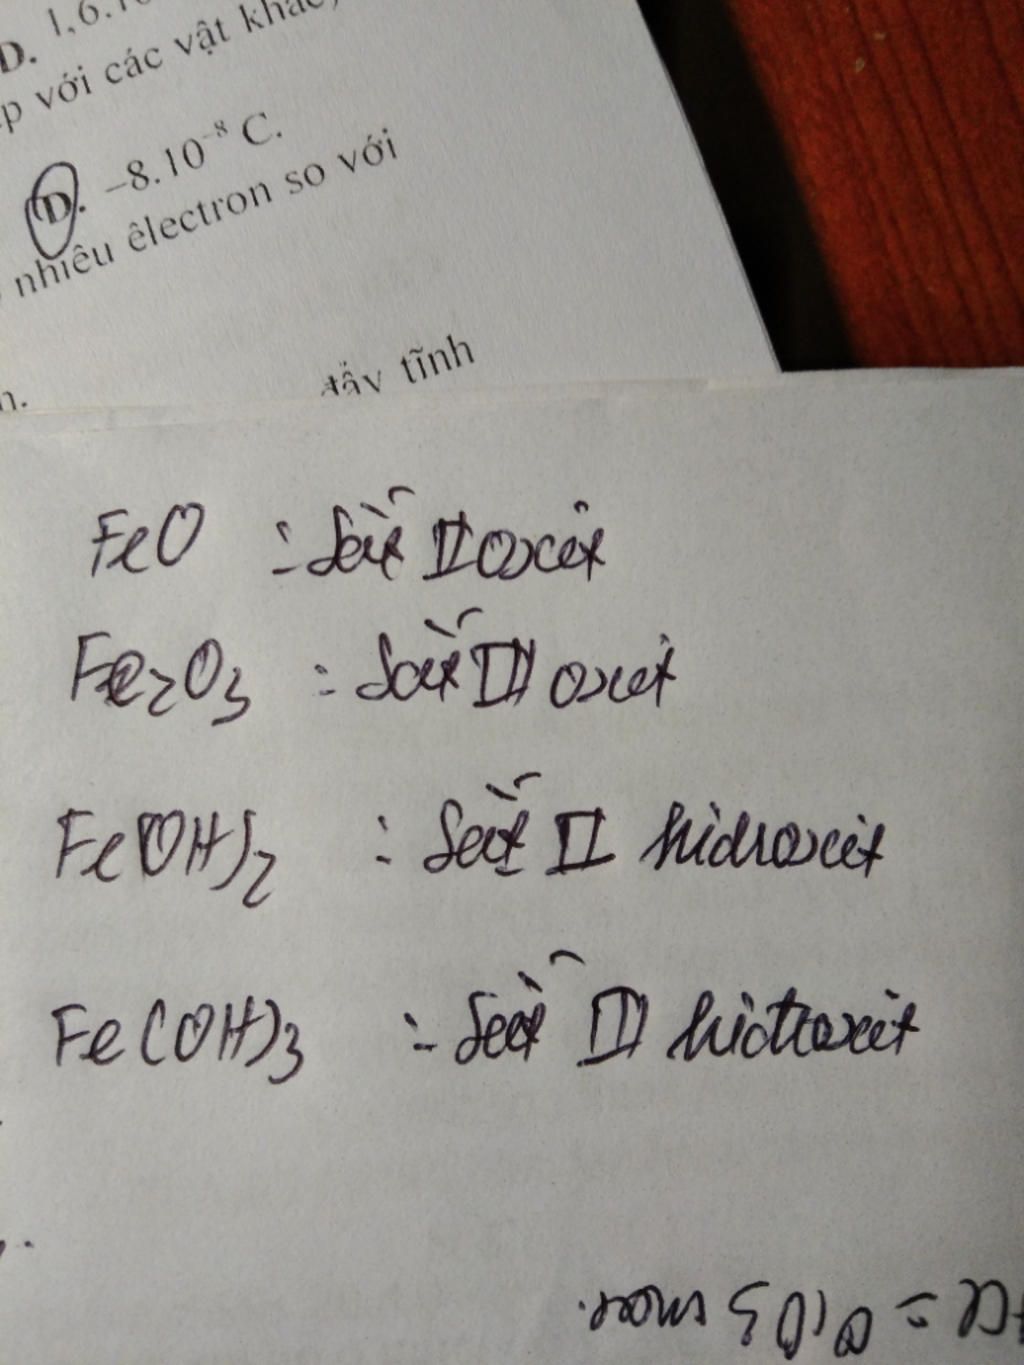 D. 1,6.10
p với các vật khác,
D. –8.10⁻⁸ C.
nhiêu êlectron so với
đẩy tĩnh
FeO : Sắt II oxit
Fe₂O₃ : Sắt III oxit
Fe(OH)₂ : Sắt II hidroxit
Fe(OH)₃ : Sắt III hidroxit
= 0,03 mol.